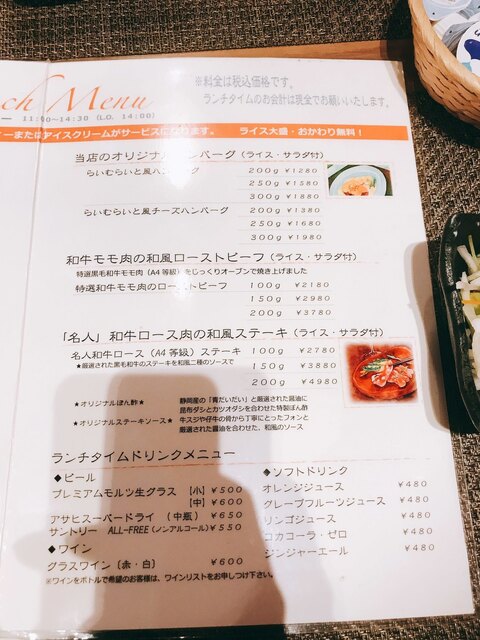 ch Menu
※料金は税込価格です。
11:30~14:30 (L.O. 14:00)
ランチタイムのお会計は現金でお願いいたします。
ーまたはアイスクリームがサービスになります。 ライス大盛・おかわり無料！
当店のオリジナルハンバーグ（ライス・サラダ付）
らいむらいと風ハンバーグ 200g ¥1280
250g ¥1580
300g ¥1880
らいむらいと風チーズハンバーグ 200g ¥1380
250g ¥1680
300g ¥1980
和牛モモ肉の和風ローストビーフ（ライス・サラダ付）
特選黒毛和牛モモ肉（A4等級）をじっくりオーブンで焼き上げました
特選和牛モモ肉のローストビーフ 100g ¥2180
150g ¥2980
200g ¥3780
「名人」和牛ロース肉の和風ステーキ（ライス・サラダ付）
名人和牛ロース（A4等級）ステーキ 100g ¥2780
★厳選された黒毛和牛のステーキを和風二種のソースで 150g ¥3880
200g ¥4980
★オリジナルぽん酢★ 静岡産の「青だいだい」と厳選された醤油に
昆布ダシとカツオダシを合わせた特製ぽん酢
★オリジナルステーキソース★ 牛スジや仔牛の骨から丁寧にとったフォンと
厳選された醤油を合わせた、和風のソース
ランチタイムドリンクメニュー
◆ビール
プレミアムモルツ生グラス [小] ¥500
[中] ¥600
アサヒスーパードライ （中瓶） ¥650
サントリー ALL-FREE（ノンアルコール）¥550
◆ワイン
グラスワイン〔赤・白〕 ¥600
※ワインをボトルで希望のお客様は、ワインリストをお申しつけ下さい。
◆ソフトドリンク
オレンジジュース ¥480
グレープフルーツジュース ¥480
リンゴジュース ¥480
コカコーラ・ゼロ ¥480
ジンジャーエール ¥480